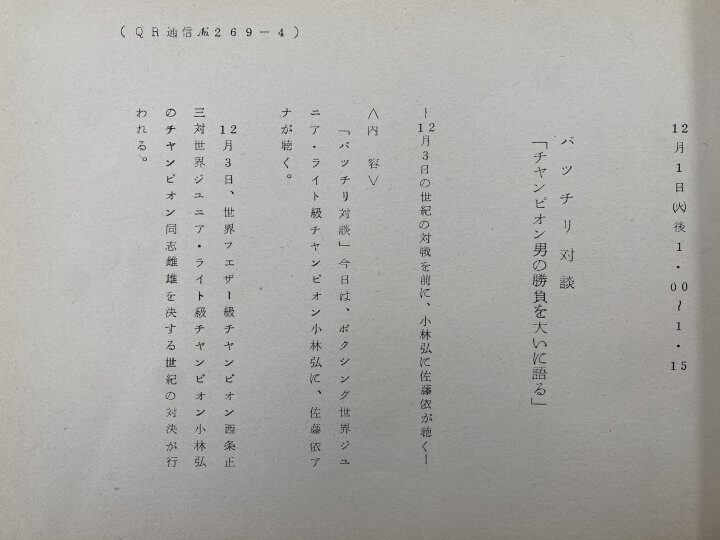 (QR通信№269-4)
12月1日(火)後1・00~1・15
バッチリ対談
「チャンピオン男の勝負を大いに語る」
ー12月3日の世紀の対戦を前に、小林弘に佐藤依が聴くー
<内 容>
「バッチリ対談」今日は、ボクシング世界ジュ
ニア・ライト級チャンピオン小林弘に、佐藤依ア
ナが聴く。
12月3日、世界フエザー級チャンピオン西条正
三対世界ジユニア・ライト級チャンピオン小林弘
のチャンピオン同志雌雄を決する世紀の対決が行
われる。